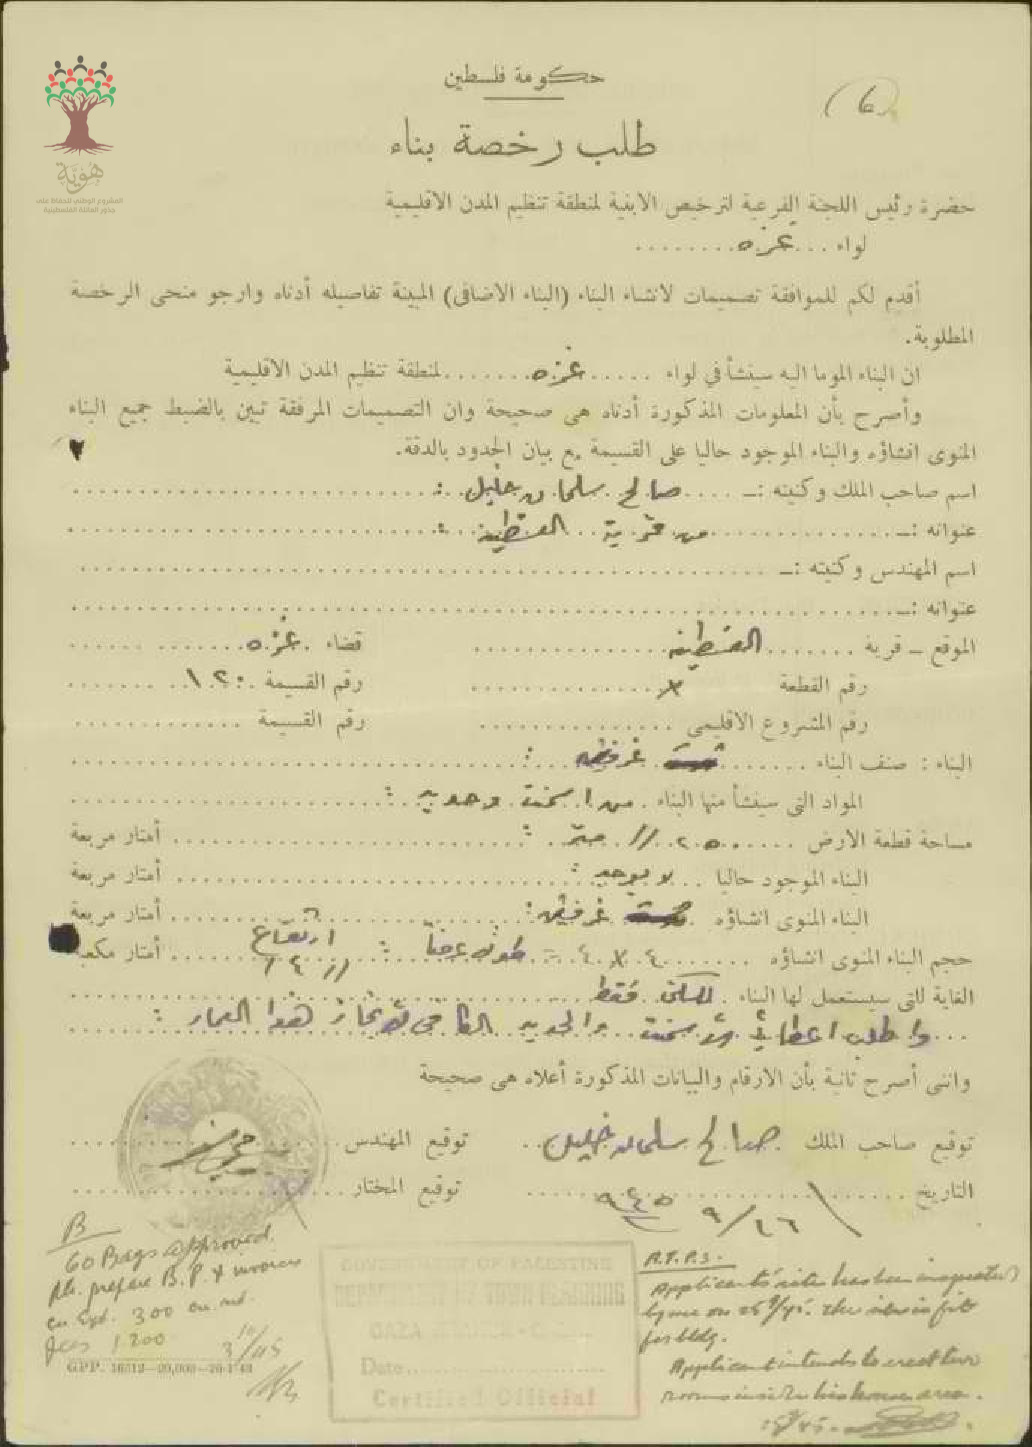 هوية
المشروع الوطني للحفاظ على
جذور العائلة الفلسطينية
(6)
حكومة فلسطين
طلب رخصة بناء
حضرة رئيس اللجنة الفرعية لترخيص الابنية لمنطقة تنظيم المدن الاقليمية
لواء ... غزه ........
أقدم لكم للموافقة تصميمات لانشاء البناء (البناء الاضافى) المبينة تفاصيله أدناه وارجو منحى الرخصة
المطلوبة.
ان البناء الموما اليه سينشأ في لواء ..... غزه ....... لمنطقة تنظيم المدن الاقليمية
وأصرح بأن المعلومات المذكورة أدناه هى صحيحة وان التصميمات المرفقة تبين بالضبط جميع البناء
المنوى انشاؤه والبناء الموجود حاليا على القسيمة مع بيان الحدود بالدقة.
اسم صاحب الملك وكنيته :ــ .... صالح سلمان خليل
عنوانه :ــ ........ من قرية
اسم المهندس وكنيته :ــ ........
عنوانه :ــ ........
الموقع ــ قرية ........ قضاء . غزه ........
رقم القطعة ........ رقم القسيمة ........
رقم المشروع الاقليمى ........ رقم القسيمة ........
البناء : صنف البناء ........
المواد التى سينشأ منها البناء . من اسمنت وحديد :
مساحة قطعة الارض ...... ٢٥٠ // متر : ........ أمتار مربعة
البناء الموجود حاليا ... لا يوجد : ........ أمتار مربعة
البناء المنوى انشاؤه ........ أمتار مربعة
حجم البناء المنوى انشاؤه ........ ٤ × ٤ ........ ارتفاع ........ أمتار مكعبة
الغاية للتى سيستعمل لها البناء . للسكن فقط ........
واطلب اعطائي ........ والحديد الكافي ........ هذا العمار :
وانى أصرح ثانية بأن الارقام والبيانات المذكورة أعلاه هى صحيحة
توقيع صاحب الملك . صالح سلمان خليل .. توقيع المهندس ........
التاريخ ........ ٢٦/٩ ٩٤٥ ........ توقيع المختار ........
B
60 Bags approved.
Pls. prepare B.P. & invoices
300
fees 1200
3/10/45
G.P.P. 16512—20,000—26-1-43
GOVERNMENT OF PALESTINE
DEPARTMENT OF TOWN PLANNING
GAZA
Date
Certified Official
A.T.P.S.
Applicant's site has been inspected
by me on 25/9/45. The site is fit
for bldg.
Applicant intends to erect two
rooms inside his house area.